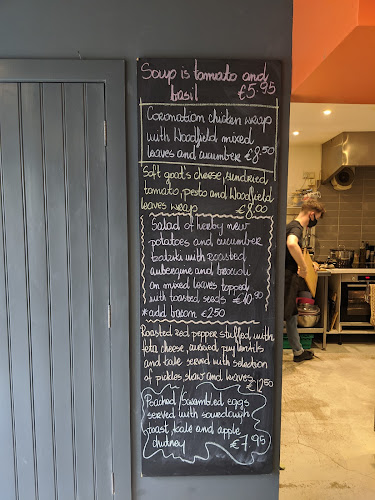 Soup is tomato and
basil €5.95
Coronation chicken wrap
with Woodfield mixed
leaves and cucumber €8.50
Soft goat's cheese, sundried
tomato, pesto and Woodfield
leaves wrap €8.00
Salad of herby new
potatoes and cucumber
tzatziki with roasted
aubergine and broccoli
on mixed leaves topped
with toasted seeds €10.90
*add bacon €2.50
Roasted red pepper stuffed with
feta cheese, puy lentils
and kale served with selection
of pickles slaw and leaves €12.50
Poached/Scrambled eggs
served with sourdough
toast, kale and apple
chutney €7.95